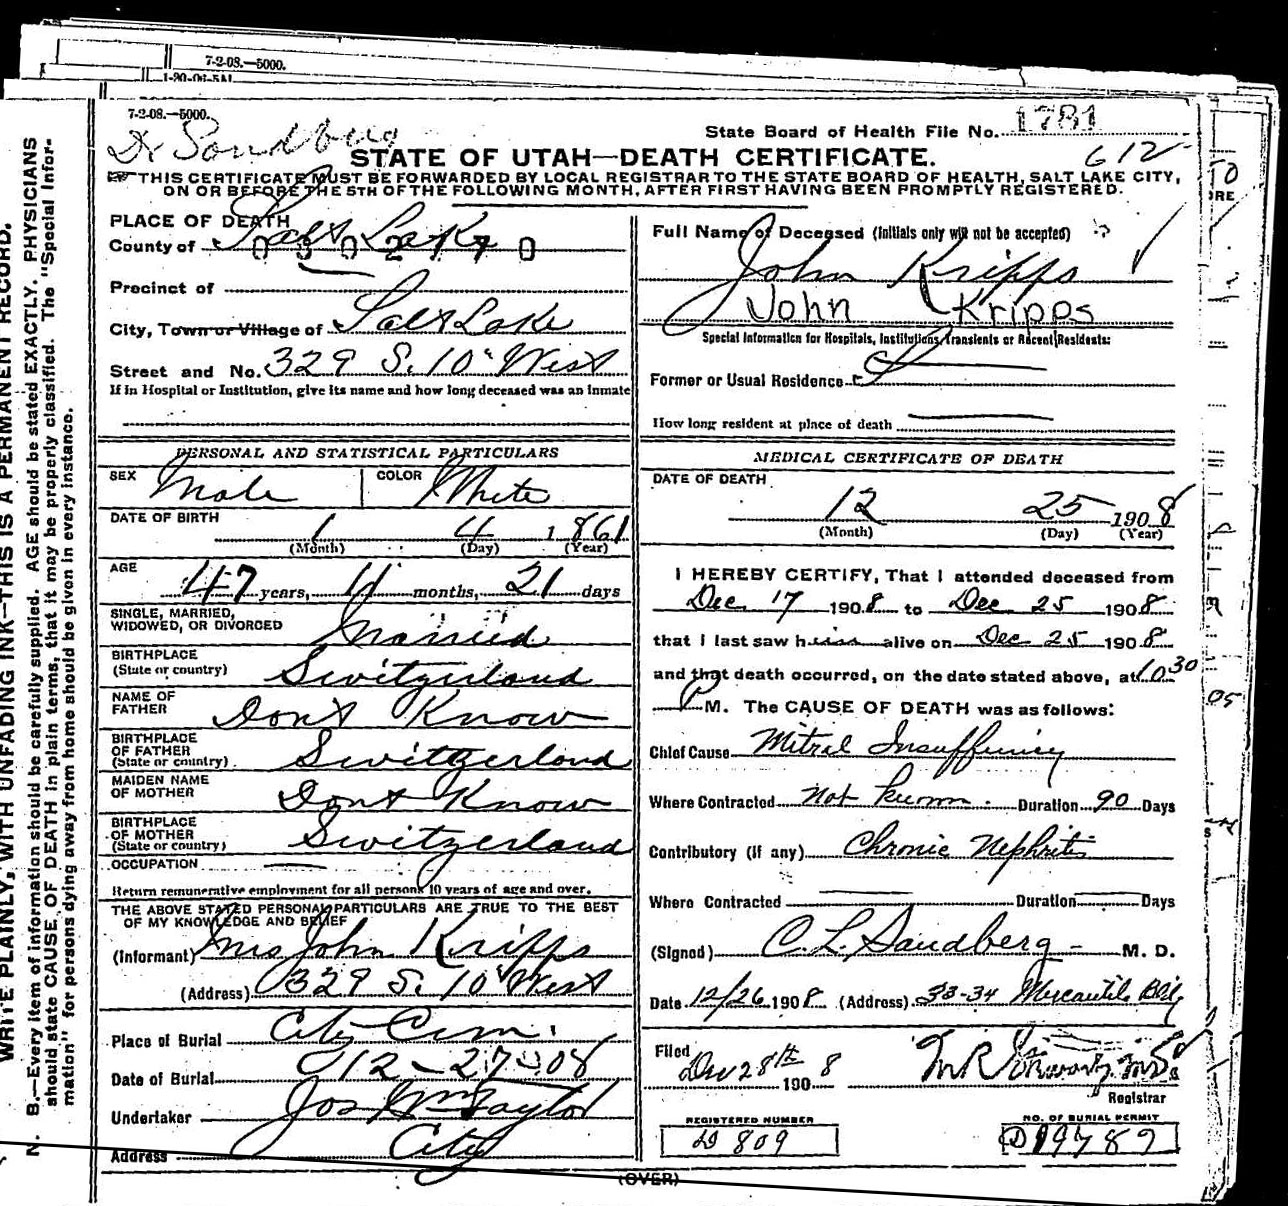 7-2-08.—5000.
1-20-08-5M
7-2-08.—5000.
Dr Sandberg
State Board of Health File No. 1781
612
STATE OF UTAH—DEATH CERTIFICATE.
THIS CERTIFICATE MUST BE FORWARDED BY LOCAL REGISTRAR TO THE STATE BOARD OF HEALTH, SALT LAKE CITY,
ON OR BEFORE THE 5TH OF THE FOLLOWING MONTH, AFTER FIRST HAVING BEEN PROMPTLY REGISTERED.
WRITE PLAINLY, WITH UNFADING INK—THIS IS A PERMANENT RECORD.
N. B.—Every item of information should be carefully supplied. AGE should be stated EXACTLY. PHYSICIANS
should state CAUSE OF DEATH in plain terms, that it may be properly classified. The "Special Infor-
mation" for persons dying away from home should be given in every instance.
PLACE OF DEATH
County of Salt Lake
0 3 0 2 1 7 0
Precinct of
City, Town or Village of Salt Lake
Street and No. 329 S. 10" West
If in Hospital or Institution, give its name and how long deceased was an inmate
PERSONAL AND STATISTICAL PARTICULARS
SEX Male COLOR White
DATE OF BIRTH 1 4 1861
(Month) (Day) (Year)
AGE 47 years, 11 months, 21 days
SINGLE, MARRIED,
WIDOWED, OR DIVORCED Married
BIRTHPLACE
(State or country) Switzerland
NAME OF
FATHER Dont Know
BIRTHPLACE
OF FATHER
(State or country) Switzerland
MAIDEN NAME
OF MOTHER Dont Know
BIRTHPLACE
OF MOTHER
(State or country) Switzerland
OCCUPATION
Return remunerative employment for all persons 10 years of age and over.
THE ABOVE STATED PERSONAL PARTICULARS ARE TRUE TO THE BEST
OF MY KNOWLEDGE AND BELIEF
(Informant) Mrs John Kripps
(Address) 329 S. 10" West
Place of Burial City Cem.
Date of Burial 12-27-08
Undertaker Jos Wm Taylor
Address City
Full Name of Deceased (Initials only will not be accepted)
John Kripps
John Kripps
Special Information for Hospitals, Institutions, Transients or Recent Residents:
Former or Usual Residence
How long resident at place of death
MEDICAL CERTIFICATE OF DEATH
DATE OF DEATH
12 25 1908
(Month) (Day) (Year)
I HEREBY CERTIFY, That I attended deceased from
Dec 17 1908 to Dec 25 1908
that I last saw him alive on Dec 25 1908
and that death occurred, on the date stated above, at 10 30
P M. The CAUSE OF DEATH was as follows:
Chief Cause Mitral Insufficiency
Where Contracted Not known. Duration 90 Days
Contributory (if any) Chronic Nephritis
Where Contracted Duration Days
(Signed) C. L. Sandberg M. D.
Date 12/26 1908 (Address) 33-34 Mercantile Bld
Filed
Dec 28th 1908
M R Stewart M.D.
Registrar
REGISTERED NUMBER
D 809
NO. OF BURIAL PERMIT
D 19789
(OVER)